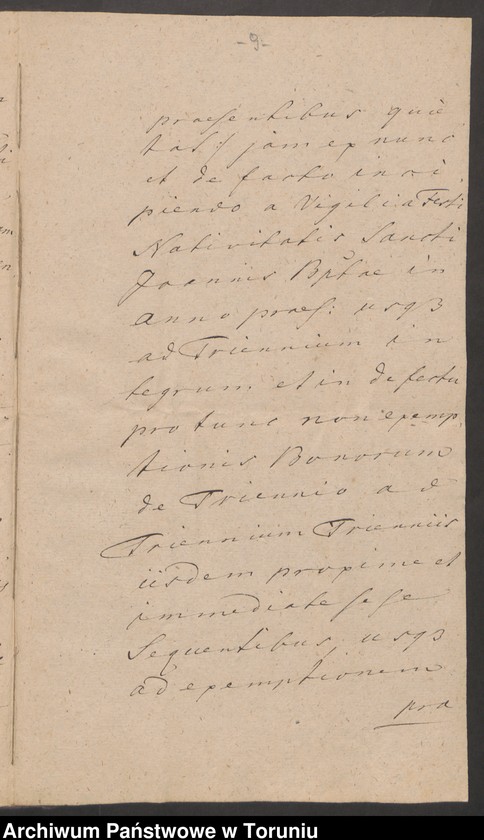 - 9 -
praesentibus quie
tat :/ jam ex nunc
et de facto inci
piendo a Vigilia Festi
Nativitatis Sancti
Joannis Bptae in
anno praes: usqз
ad Triennium in
tegrum et in defectu
pro tunc non exemp
tionis Bonorum
de Triennio ad
Triennium Trienniis
iisdem proxime et
immediate sese
Sequentibus, usqз
ad exemptionem
pra
Archiwum Państwowe w Toruniu